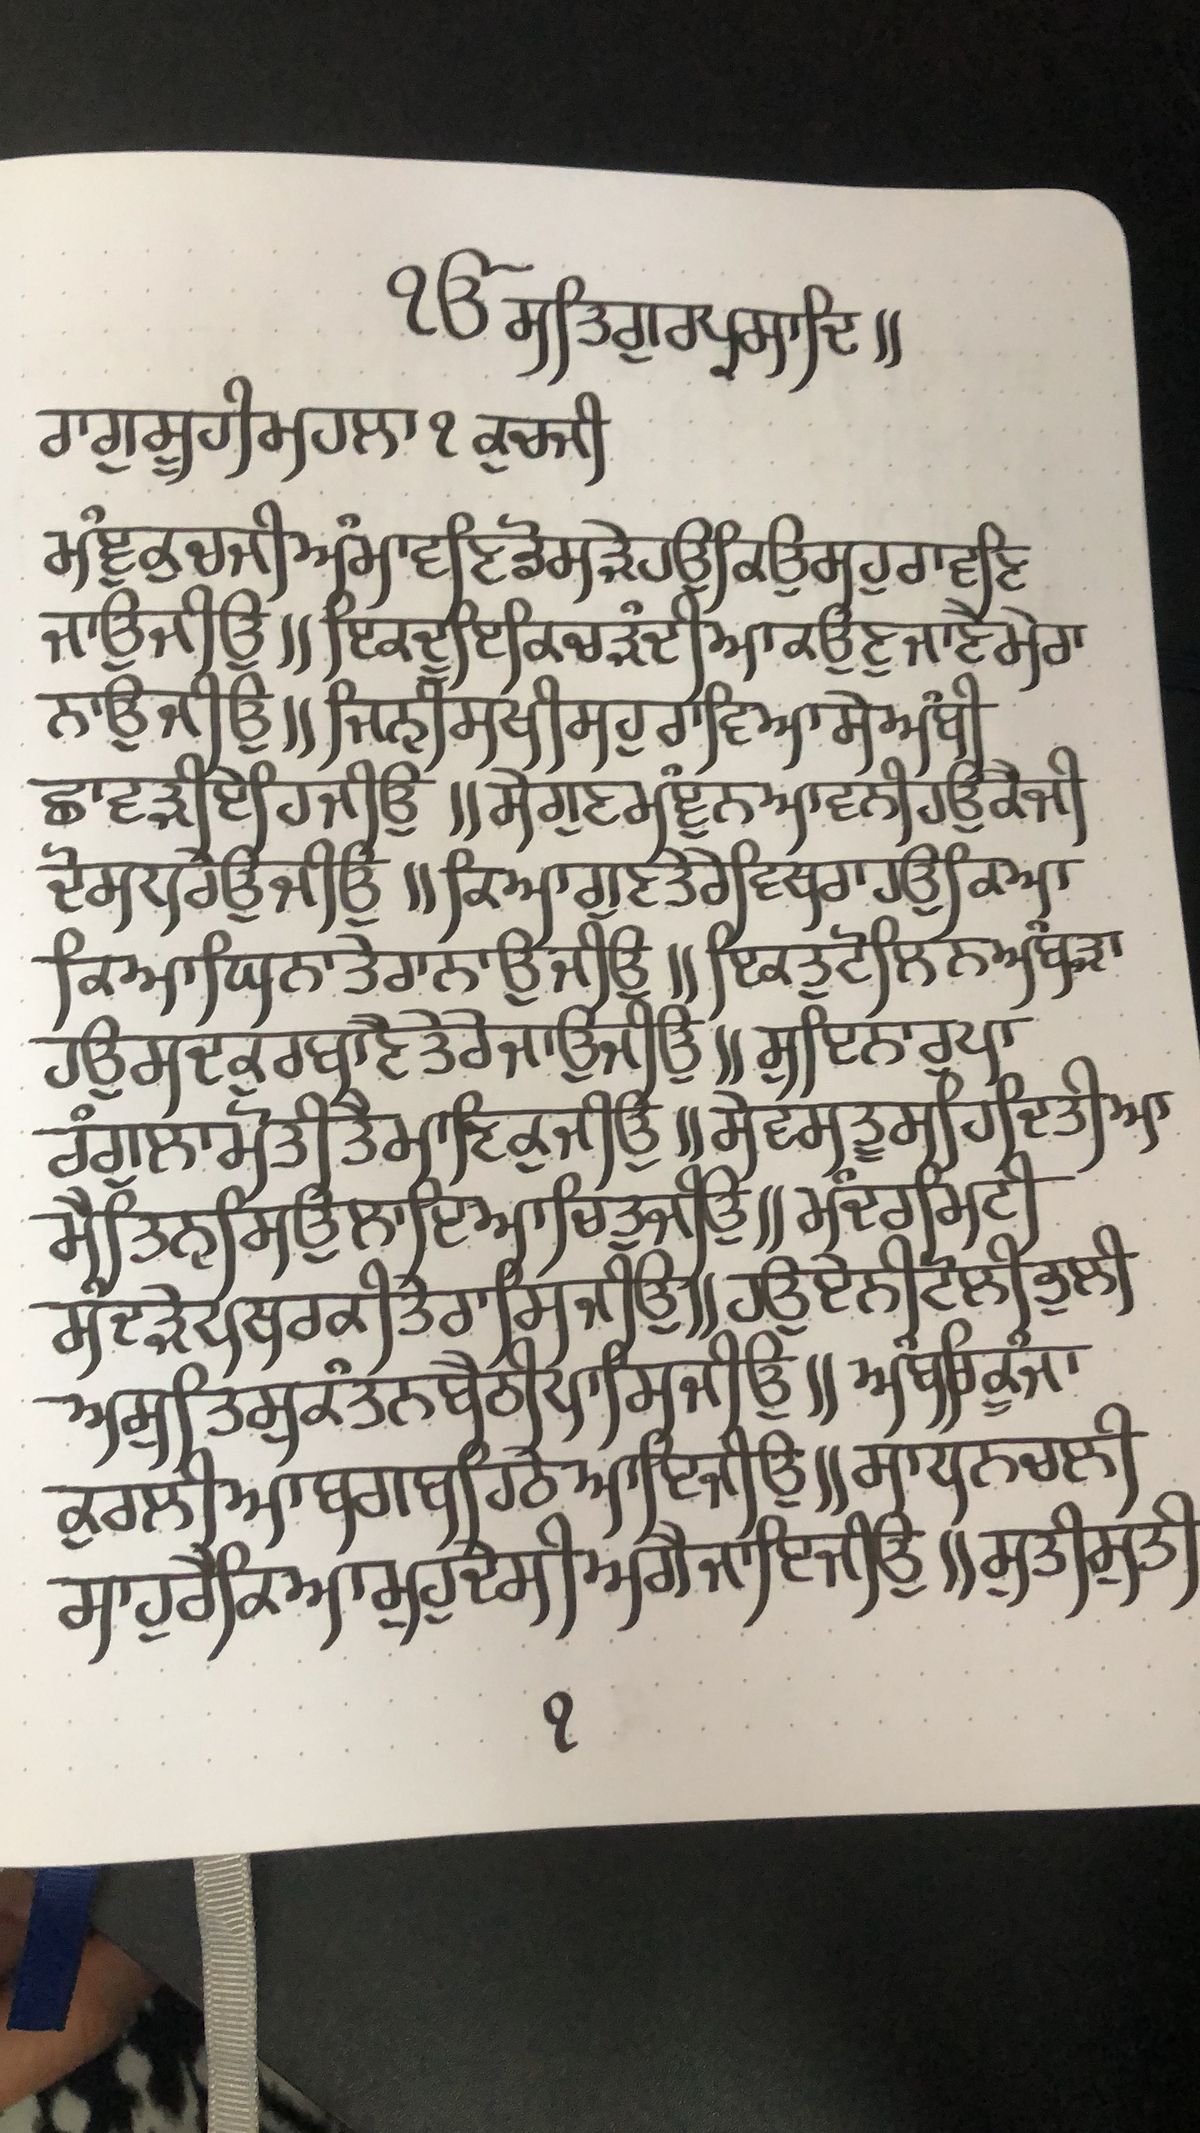 ੴ ਸਤਿਗੁਰਪ੍ਰਸਾਦਿ॥
ਰਾਗੁਸੂਹੀਮਹਲਾ੧ ਕੁਚਜੀ
ਮੰਞੁਕੁਚਜੀਅੰਮਾਵਣਿਡੋਸੜੇਹਉਕਿਉਸਹੁਰਾਵਣਿ
ਜਾਉਜੀਉ॥ ਇਕਦੂਇਕਿਚੜੰਦੀਆਕਉਣੁਜਾਣੈਮੇਰਾ
ਨਾਉਜੀਉ॥ ਜਿਨੑੀਸਖੀਸਹੁਰਾਵਿਆਸੇਅੰਬੀ
ਛਾਵੜੀਏਹਿਜੀਉ ॥ਸੇਗੁਣਮੰਞੁਨਆਵਨੀਹਉਕੈਜੀ
ਦੋਸਧਰੇਉਜੀਉ ॥ਕਿਆਗੁਣਤੇਰੇਵਿਥਰਾਹਉਕਿਆ
ਕਿਆਘਿਨਾਤੇਰਾਨਾਉਜੀਉ॥ ਇਕਤੁਟੋਲਿਨਅੰਬੜਾ
ਹਉਸਦਕੁਰਬਾਣੈਤੇਰੇਜਾਉਜੀਉ॥ ਸੁਇਨਾਰੁਪਾ
ਰੰਗੁਲਾਮੋਤੀਤੈਮਾਣਿਕੁਜੀਉ॥ਸੇਵਸਤੂਸਹਿਦਿਤੀਆ
ਮੈਤਿਨੑਸਿਉਲਾਇਆਚਿਤੁਜੀਉ॥ ਮੰਦਰਮਿਟੀ
ਸੰਦੜੇਪਥਰਕੀਤੇਰਾਸਿਜੀਉ॥ਹਉਏਨੀਟੋਲੀਭੁਲੀ
ਅਸੁਤਿਸੁਕੰਤਨਬੈਠੀਪਾਸਿਜੀਉ॥ ਅੰਬਰਿਕੂੰਜਾ
ਕੁਰਲੀਆਬਗਬਹਿਠੇਆਇਜੀਉ॥ਸਾਧਨਚਲੀ
ਸਾਹੁਰੈਕਿਆਮੁਹੁਦੇਸੀਅਗੈਜਾਇਜੀਉ॥ਸੁਤੀਸੁਤੀ
੧